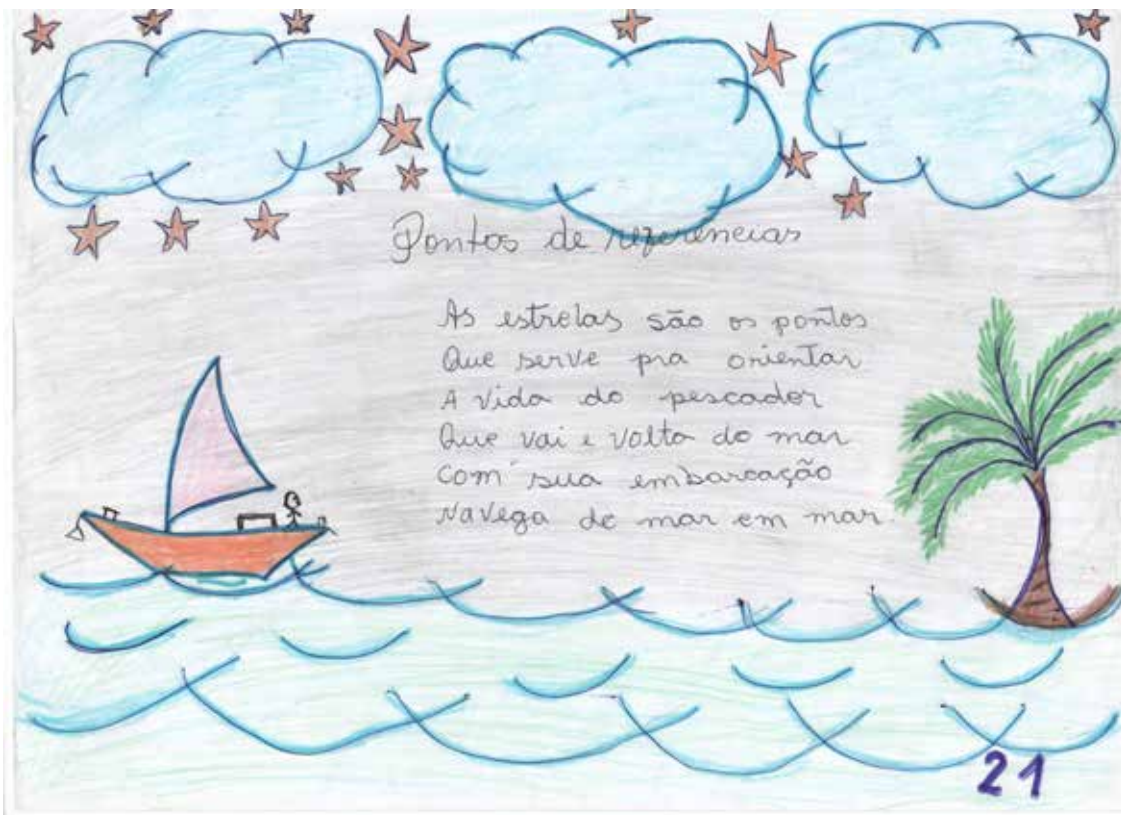 Pontos de referencias
As estrelas são os pontos
Que serve pra orientar
A vida do pescador
Que vai e volta do mar
Com sua embarcação
Navega de mar em mar.
21